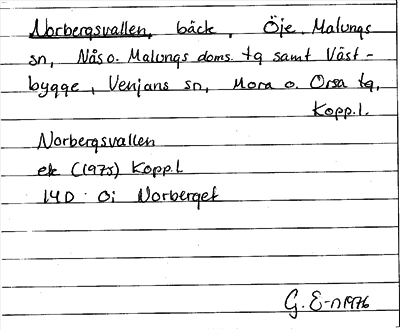 Norbergsvallen, bäck, Öje, Malungs
sn, Nås o. Malungs doms. tg samt Väst-
bygge, Venjans sn, Mora o. Orsa tg,
Kopp.l.
Norbergsvallen
ek (1975) Kopp.l
14D Oi Norberget
G. E-n 1976